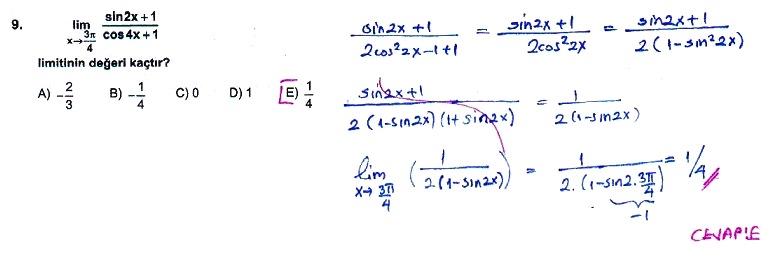 9. lim x→3π/4 (sin2x+1)/(cos4x+1)
limitinin değeri kaçtır?
A) -2/3 B) -1/4 C) 0 D) 1 E) 1/4
(sin2x+1)/(2cos²2x-1+1) = (sin2x+1)/(2cos²2x) = (sin2x+1)/(2(1-sin²2x))
(sin2x+1)/(2(1-sin2x)(1+sin2x)) = 1/(2(1-sin2x))
lim x→3π/4 (1/(2(1-sin2x))) = 1/(2.(1-sin2.3π/4)) = 1/4
-1
CEVAP:E